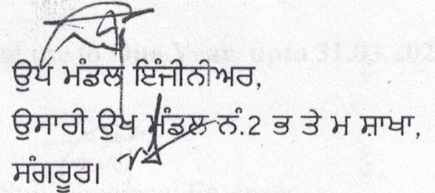 ਉਪ ਮੰਡਲ ਇੰਜੀਨੀਅਰ,
ਉਸਾਰੀ ਉਪ ਮੰਡਲ ਨੰ.2 ਭ ਤੇ ਮ ਸ਼ਾਖਾ,
ਸੰਗਰੂਰ।